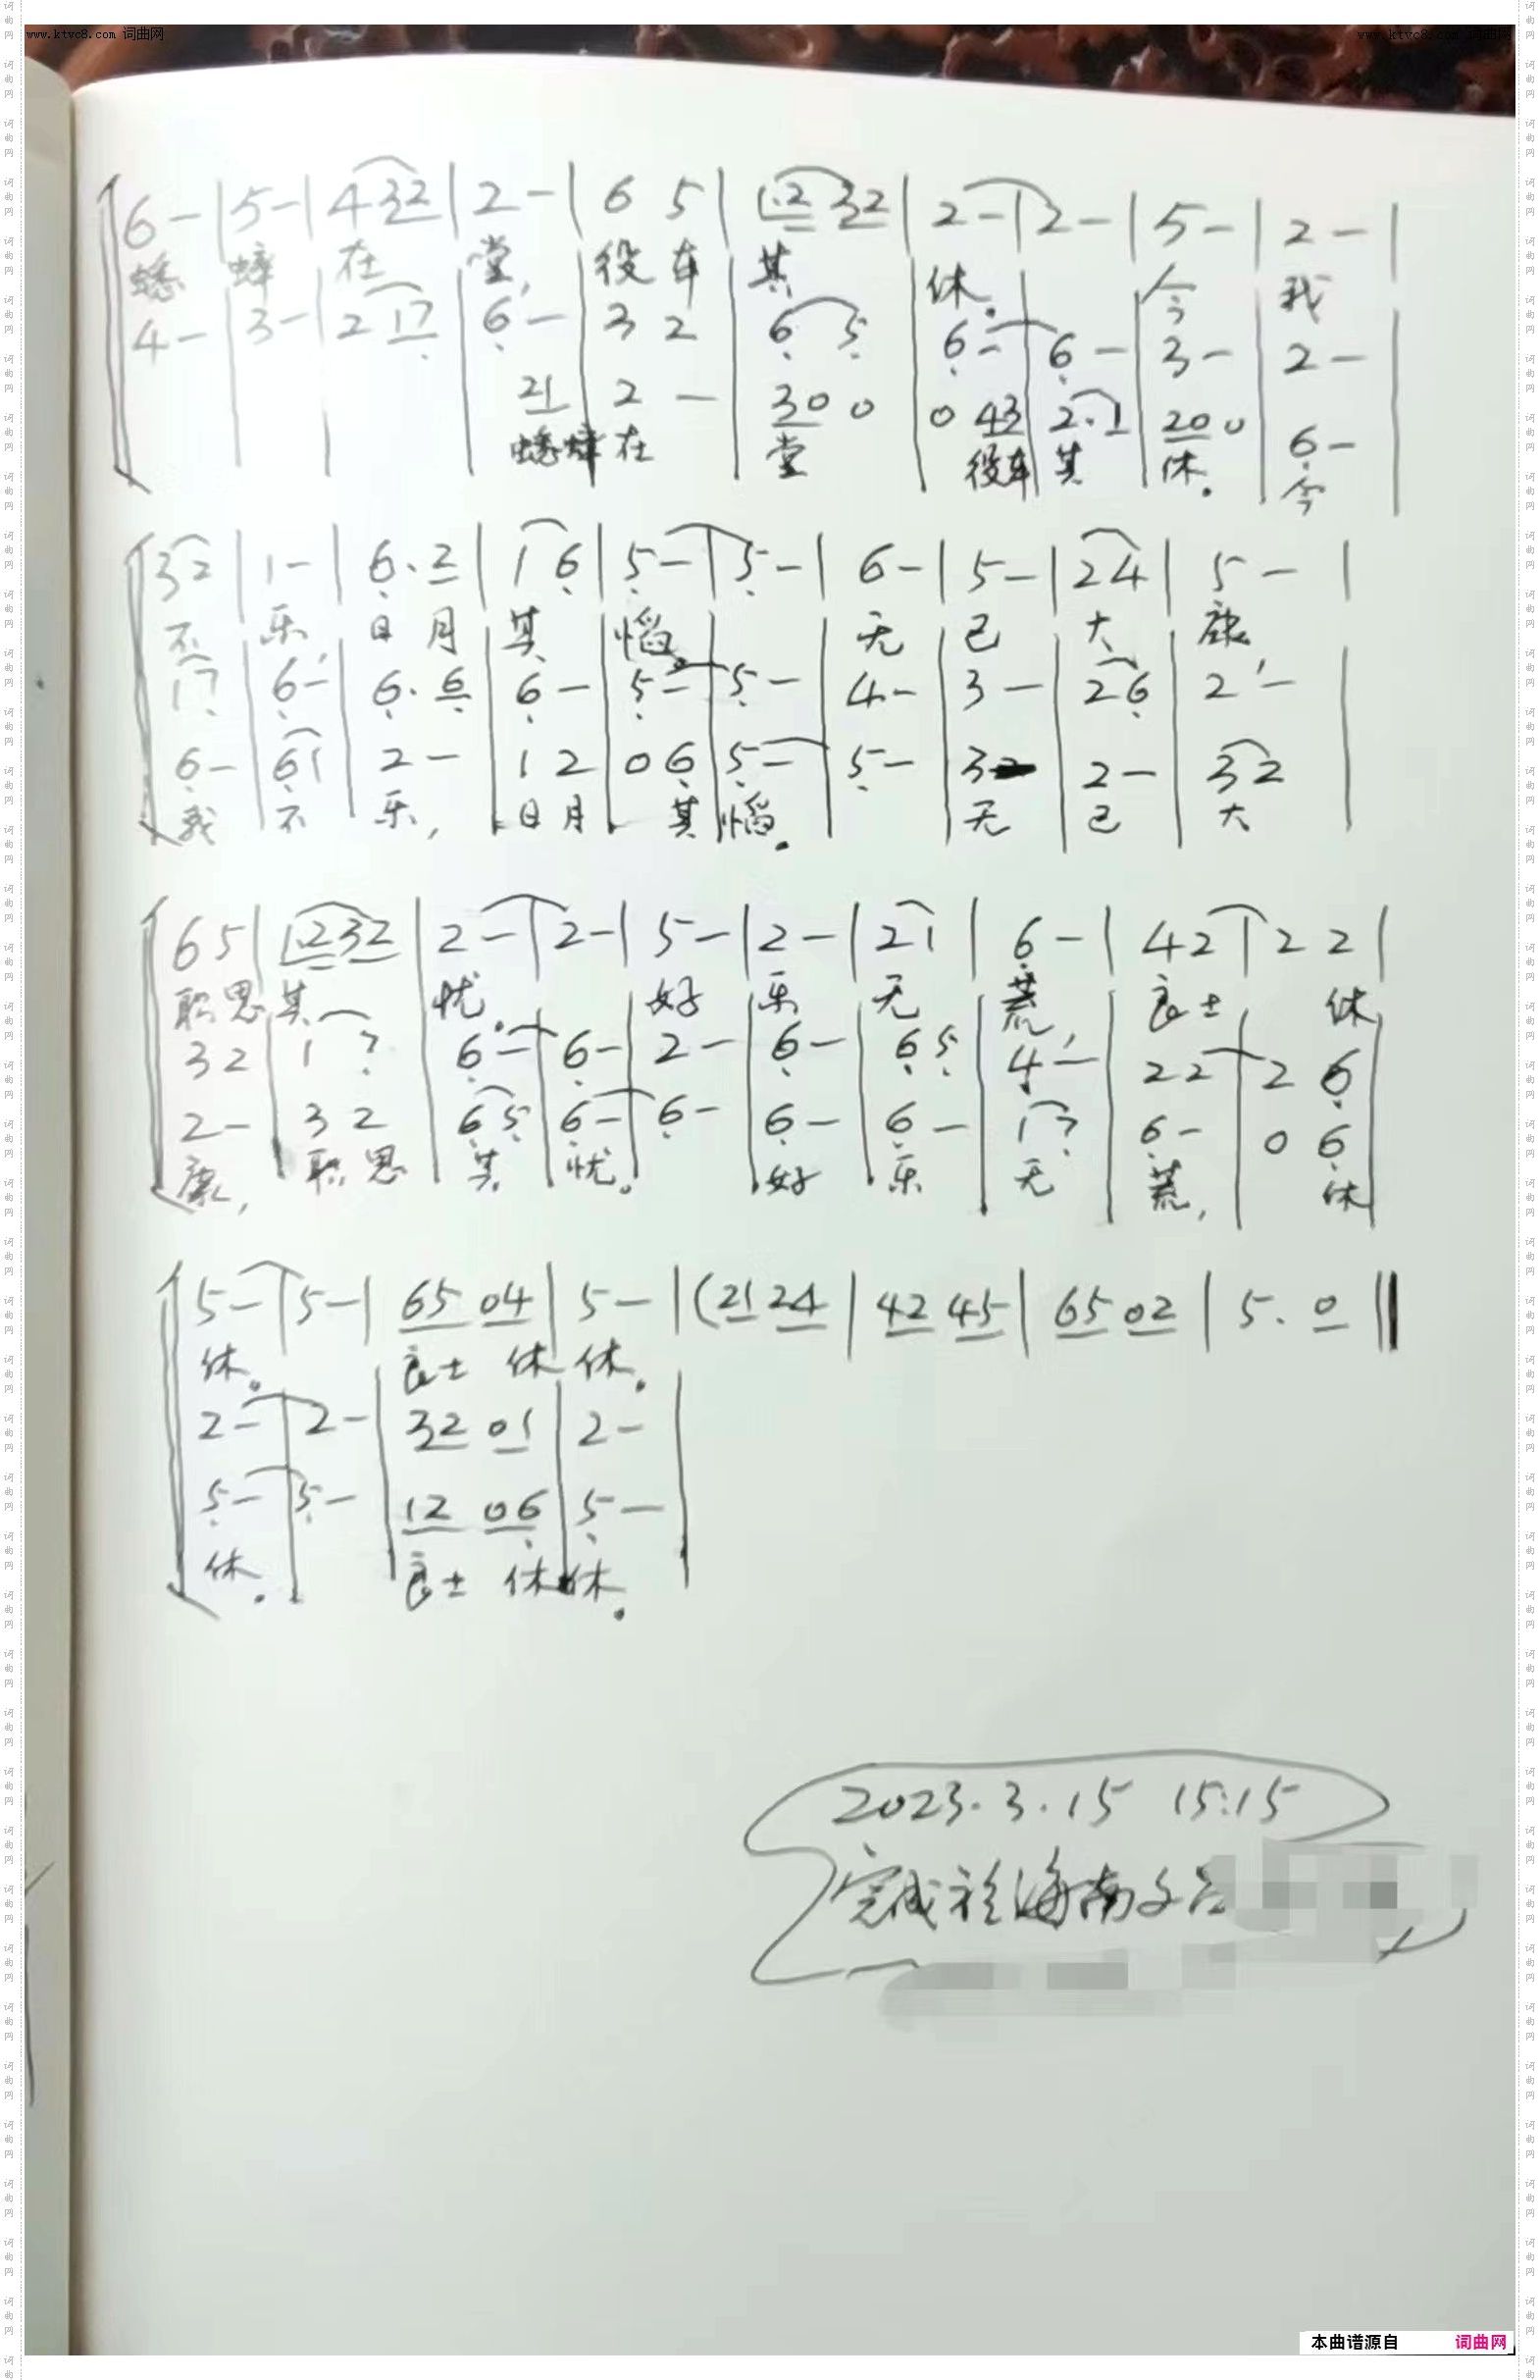 www.ktvc8.com 词曲网
www.ktvc8.com 词曲网
6 - | 5 - | 4 32 | 2 - | 6 5 | 1.2 32 | 2 - | 2 - | 5 - | 2 - |
蟋 蟀 在 堂, 役车 其 休。 今 我
4 - | 3 - | 2 17 | 6 - | 3 2 | 6 5 | 6 - | 6 - | 3 - | 2 -
21 | 2 - | 30 0 | 0 43 | 2.1 | 20 0 | 6 -
蟋蟀在 堂 役车 其 休。 今
32 | 1 - | 6. 2 | 1 6 | 5 - | 5 - | 6 - | 5 - | 24 | 5 - |
不 乐, 日 月 其 慆。 无 已 大 康,
17 | 6 - | 6. 6 | 6 - | 5 - | 5 - | 4 - | 3 - | 26 | 2 - |
6 - | 61 | 2 - | 1 2 | 0 6 | 5 - | 5 - | 3 | 2 - | 32 |
我 不 乐, 日月 其 慆。 无 已 大
65 | 1.232 | 2 - | 2 - | 5 - | 2 - | 21 | 6 - | 42 | 2 2 |
职思 其 忧。 好 乐 无 荒, 良士 休
32 | 1 7 | 6 - | 6 - | 2 - | 6 - | 65 | 4 - | 22 | 2 6
2 - | 32 | 65 | 6 - | 6 - | 6 - | 6 - | 17 | 6 - | 0 6
康, 职思 其 忧。 好 乐 无 荒, 休
5 - | 5 - | 65 04 | 5 - | (21 24 | 42 45 | 65 02 | 5. 0 ||
休。 良士 休 休。
2 - | 2 - | 32 01 | 2 - |
5 - | 5 - | 12 06 | 5 - |
休。 良士 休休。
2023.3.15 15:15
完成於海南文昌
本曲谱源自 词曲网